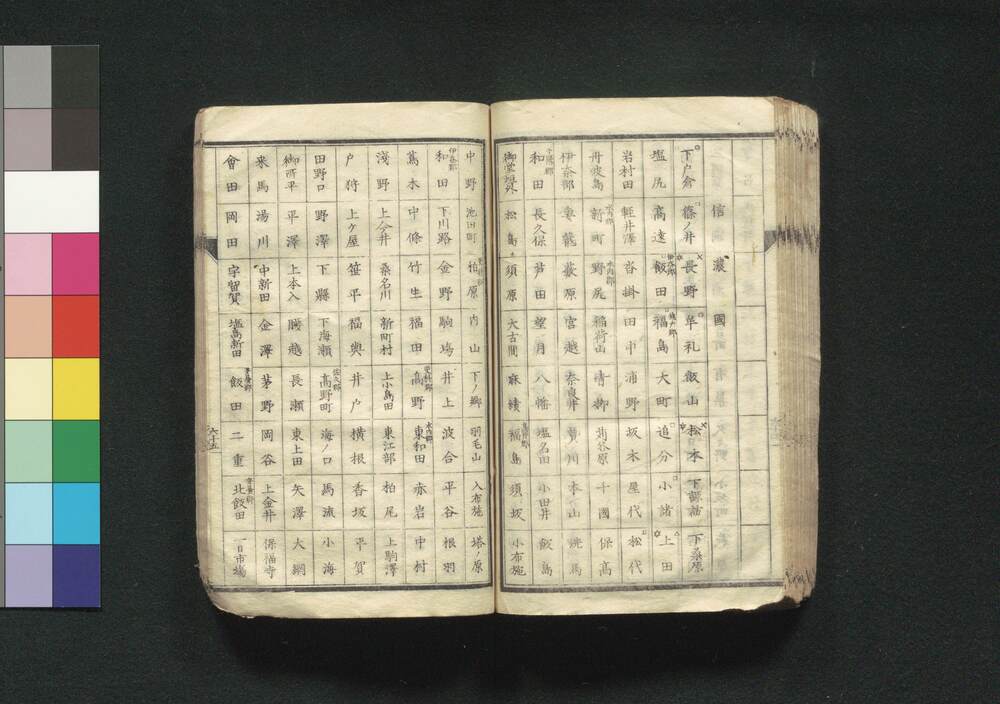 信濃國
下戸倉 篠ノ井 長野 牟礼 飯山 松本 下諏訪 下桑原
塩尻 高遠 伊奈郡 飯田 福島 大町 追分 小諸 上田
岩村田 軽井澤 沓掛 田中 浦野 坂木 屋代 松代
丹波島 水内郡 新町 水内郡 野尻 稲荷山 青柳 苅谷原 千國 保高
伊奈部 妻籠 薮原 宮越 奈良井 贄川 本山 洗馬
小縣郡 和田 長久保 芦田 望月 八幡 塩名田 小田井 飯島
御堂垣外 松島 須原 大古間 麻績 福島 須坂 小布施
中野 池田町 柏原 内山 下ノ郷 羽毛山 入布施 塔ノ原
伊奈郡 和田 下川路 金野 駒場 井上 波合 平谷 根羽
蔦木 中條 竹生 福田 更科郡 高野 水内郡 東和田 赤岩 中村
淺野 上今井 桑名川 新町村 上小島田 東江部 柏尾 上駒澤
戸狩 上ケ屋 笹平 福與 井戸 横根 香坂 平賀
田野口 野澤 下縣 下海瀬 佐久郡 高野町 海ノ口 馬流 小海
御所平 平澤 上本入 勝越 長瀬 東上田 矢澤 大網
来馬 湯川 中新田 金澤 茅野 岡谷 上金井 保福寺
會田 岡田 宇留賀 塩島新田 飯田 二重 北飯田 一日市場
六十五